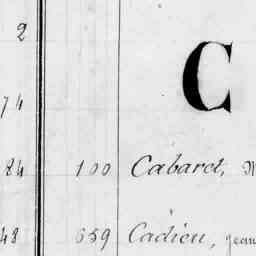 2
C
74
84 100 Cabaret,
48 659 Cadieu, Jean